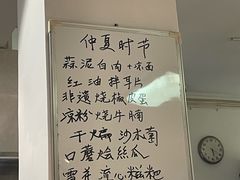 仲夏时节
蒜泥白肉+冰面
红油拌耳片
非遗烧椒皮蛋
凉粉烧牛腩
干煸沙水菊
口蘑烩丝瓜
流心糍粑